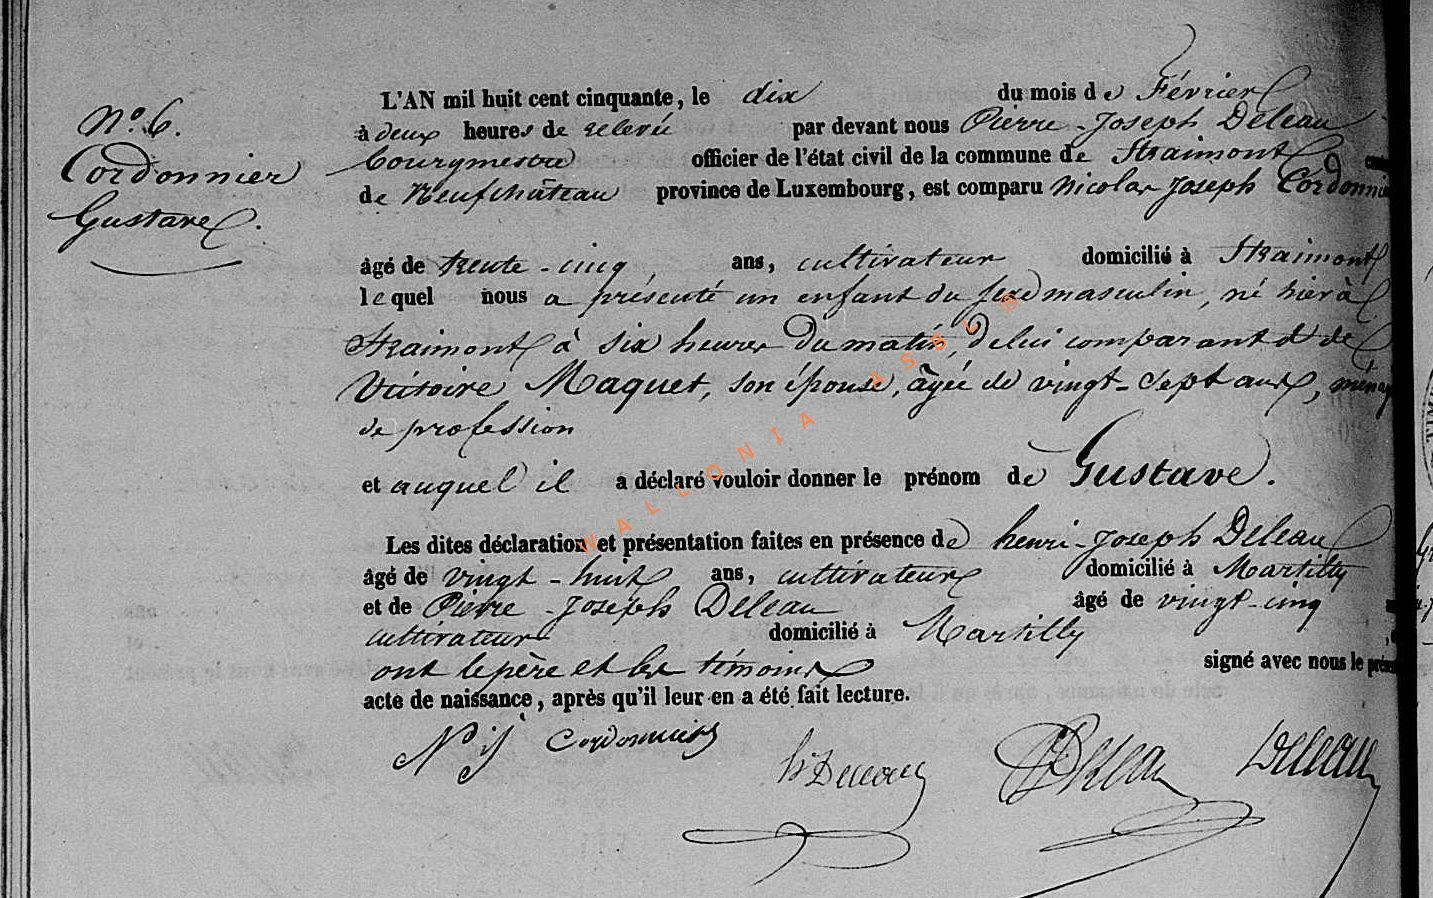 N.º 6.
Cordonnier
Gustave.
L'AN mil huit cent cinquante, le dix du mois de Février
à deux heures de relevée par devant nous Pierre-Joseph Deleau
bourgmestre officier de l'état civil de la commune de Straimont
de Neufchâteau province de Luxembourg, est comparu Nicolas Joseph Cordonnier
âgé de trente-cinq, ans, cultivateur domicilié à Straimont
lequel nous a présenté un enfant du sexe masculin, né hier à
Straimont à six heures du matin, de lui comparant & de
Victoire Maquet, son épouse, âgée de vingt-sept ans,
de profession
et auquel il a déclaré vouloir donner le prénom de Gustave.
Les dites déclaration et présentation faites en présence de henri-Joseph Deleau
âgé de vingt-huit ans, cultivateur domicilié à Martilly
et de Pierre-Joseph Deleau âgé de vingt-cinq
cultivateur domicilié à Martilly
ont le père et les témoins signé avec nous le
acte de naissance, après qu'il leur en a été fait lecture.
N j Cordonnier h Deleau PJ Deleau Deleau
WALLONIA ASBL ®